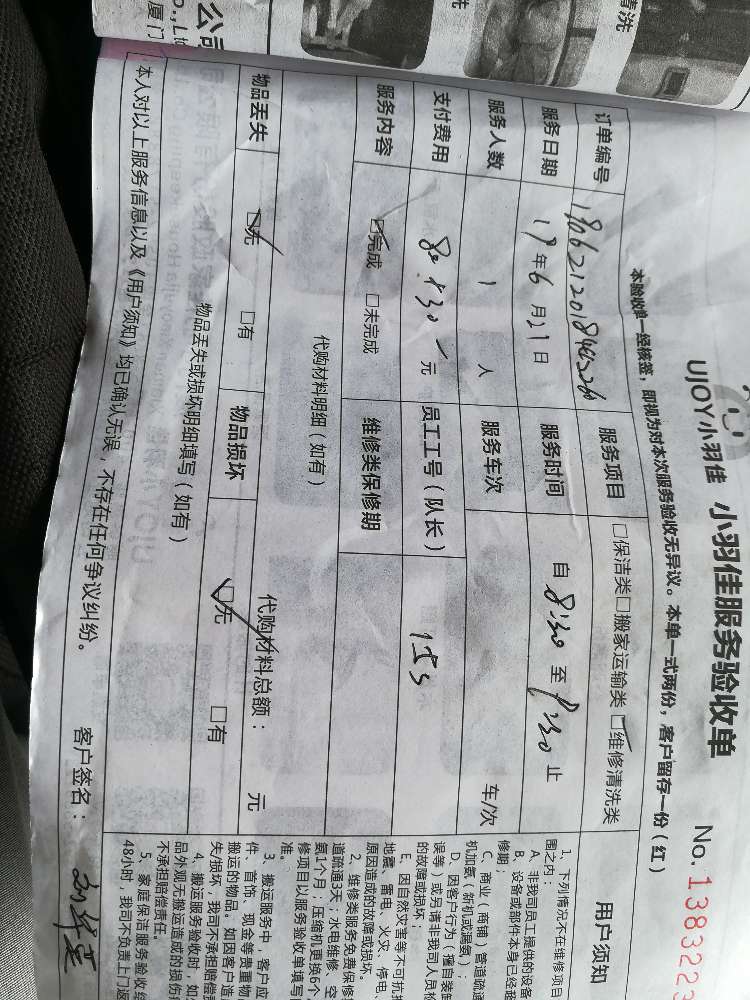 公司
厦门
清洗
UJOY小羽佳 小羽佳服务验收单
No. 1383223
本验收单一经核签，即视为对本次服务验收无异议。本单一式两份，客户留存一份（红）
订单编号 服务项目 □保洁类□搬家运输类□维修清洗类
服务日期 19年6月21日 服务时间 自8:30至9:30止
服务人数 1人 服务车次 车/次
支付费用 80+30元 员工工号（队长） 153
服务内容 ☑完成 □未完成 维修类保修期
代购材料明细（如有） 代购材料总额： 元
物品丢失 ☑无 □有 物品损坏 ☑无 □有
物品丢失或损坏明细填写（如有）
本人对以上服务信息以及《用户须知》均已确认无误，不存在任何争议纠纷。 客户签名：
用户须知
1、下列情况不在维修项目
围之内：
A、非我司员工提供的设备
B、设备或部件本身已经超
修期；
C、商业（商铺）管道疏通
机加氨（新机或漏氨）；
D、因客户行为（擅自装卸
误等）或另请非我司人员检
的故障或损坏；
E、因自然灾害等不可抗拒
地震、雷电、火灾、停电、
原因造成的故障或损坏。
2、维修类服务免费保修
道疏通3天；水电维修、空
氨1个月；压缩机更换6个
修项目以服务验收单填写
准。
3、搬运服务中，客户应
件、首饰、现金等贵重物
搬运的物品。如因客户造
失/损坏，我司不承担赔偿
4、搬运服务验收时，如
品外观无搬运造成的损伤
不承担赔偿责任。
5、家庭保洁服务验收结
48小时，我司不负责上门返